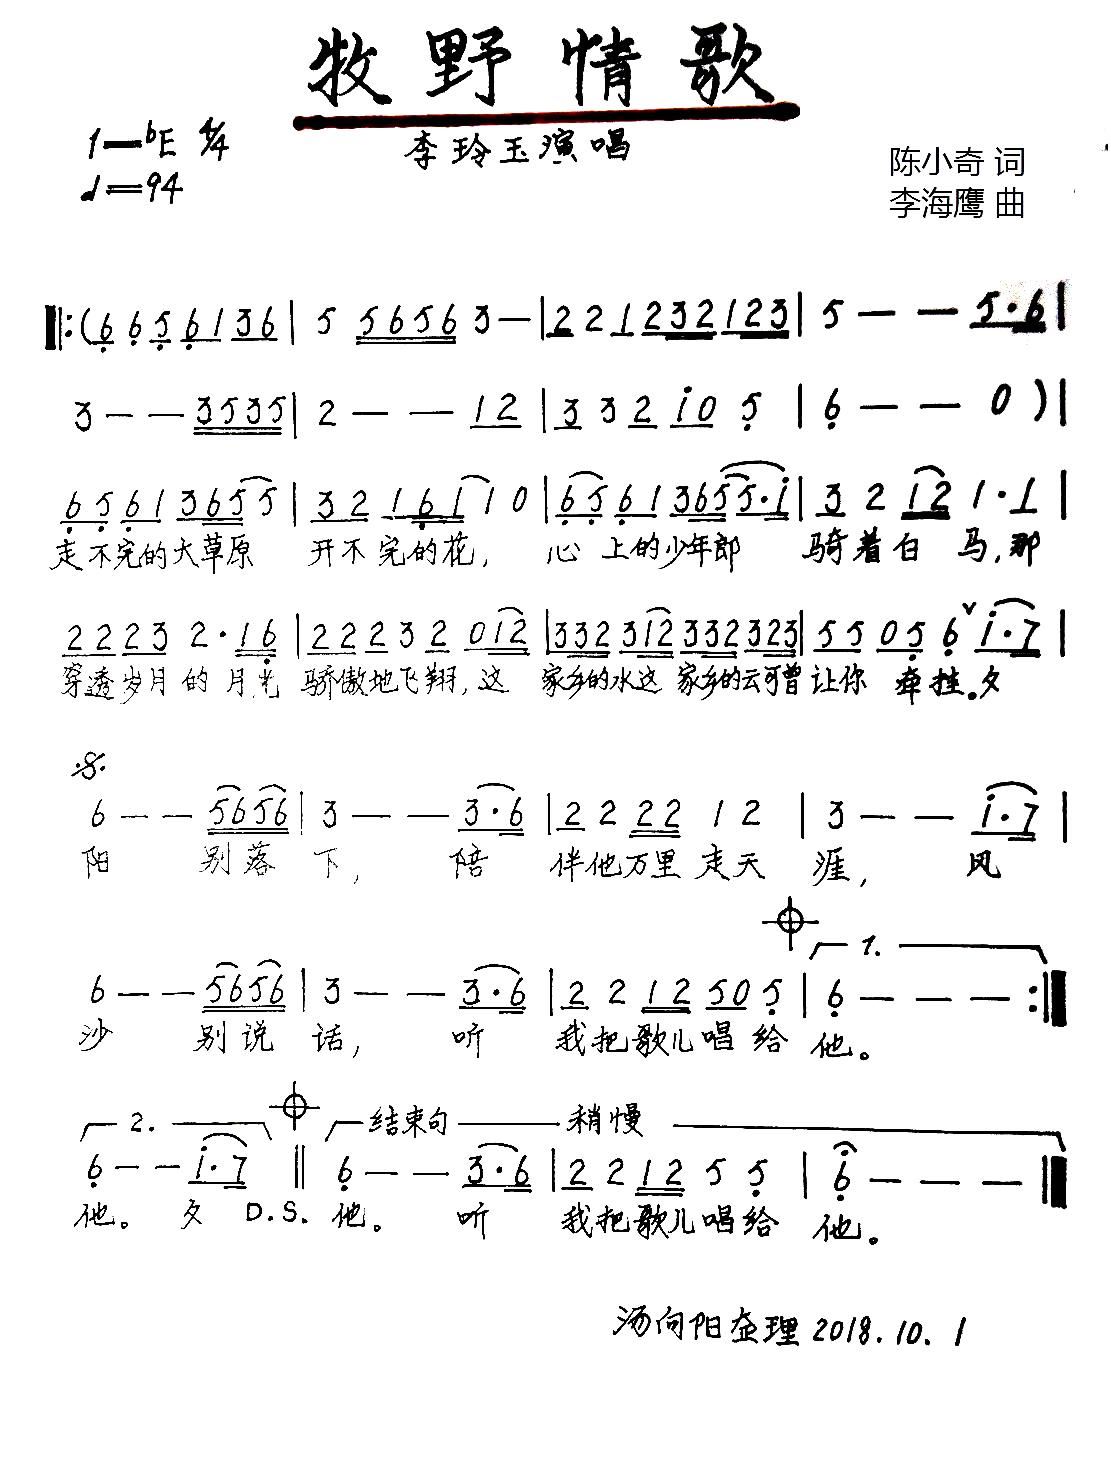 牧野情歌
1=bE 4/4
李玲玉演唱
♩=94
陈小奇 词
李海鹰 曲
‖:(6 6 5 6 1 3 6 | 5 5 6 5 6 3 — | 2 2 1 2 3 2 1 2 3 | 5 — — 5·6 |
3 — — 3 5 3 5 | 2 — — 1 2 | 3 3 2 1 0 5 | 6 — — 0 ) |
6 5 6 1 3 6 5 5 | 3 2 1 6 1 1 0 | 6 5 6 1 3 6 5 5·1 | 3 2 1 2 1·1 |
走不完的大草原 开不完的花, 心上的少年郎 骑着白马,那
2 2 2 3 2·1 6 | 2 2 2 3 2 0 1 2 | 3 3 2 3 1 2 3 3 2 3 2 3 | 5 5 0 5 6 ∨ 1·7 |
穿透岁月的月光 骄傲地飞翔,这 家乡的水这 家乡的云可曾让你 牵挂。夕
𝄋
6 — — 5 6 5 6 | 3 — — 3·6 | 2 2 2 2 1 2 | 3 — — 1·7 |
阳 别落下, 陪 伴他万里走天涯, 风
1.
6 — — 5 6 5 6 | 3 — — 3·6 | 2 2 1 2 5 0 5 | 6 — — — :‖
沙 别说话, 听 我把歌儿唱给他。
2. 结束句 稍慢
6 — — 1·7 ‖ 6 — — 3·6 | 2 2 1 2 5 5 | 6 — — — ‖
他。夕 D.S. 他。 听 我把歌儿唱给 他。
汤向阳整理 2018.10.1